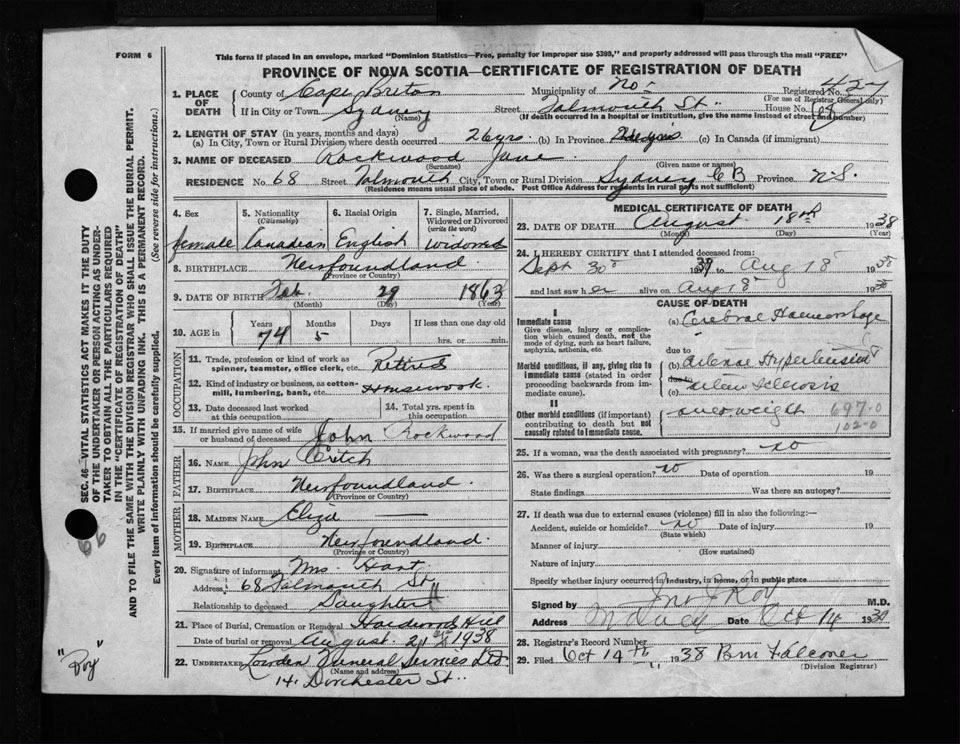 FORM 6
This form if placed in an envelope, marked "Dominion Statistics—Free, penalty for improper use $300," and properly addressed will pass through the mail "FREE"
PROVINCE OF NOVA SCOTIA—CERTIFICATE OF REGISTRATION OF DEATH
1. PLACE OF DEATH
County of Cape Breton Municipality of No- Registered No. 427
(For use of Registrar General only)
If in City or Town Sydney Street Falmouth St. House No. 68
(Name) (If death occurred in a hospital or institution, give the name instead of street and number)
2. LENGTH OF STAY (in years, months and days)
(a) In City, Town or Rural Division where death occurred 26 yrs. (b) In Province (c) In Canada (if immigrant)
3. NAME OF DECEASED Rockwood Jane
(Surname) (Given name or names)
RESIDENCE No. 68 Street Falmouth City, Town or Rural Division Sydney CB Province N.S.
(Residence means usual place of abode. Post Office Address for residents in rural parts not sufficient)
4. Sex female
5. Nationality (Citizenship) Canadian
6. Racial Origin English
7. Single, Married, Widowed or Divorced (write the word) Widowed
8. BIRTHPLACE Newfoundland
(Province or Country)
9. DATE OF BIRTH Feb. 29 1863
(Month) (Day) (Year)
10. AGE in Years 74 Months 5 Days If less than one day old hrs. or min.
OCCUPATION
11. Trade, profession or kind of work as spinner, teamster, office clerk, etc. Retired
12. Kind of industry or business, as cotton-mill, lumbering, bank, etc. Housework.
13. Date deceased last worked at this occupation
14. Total yrs. spent in this occupation
15. If married give name of wife or husband of deceased John Rockwood
FATHER
16. NAME John Critch
17. BIRTHPLACE Newfoundland.
(Province or Country)
MOTHER
18. MAIDEN NAME Eliza —
19. BIRTHPLACE Newfoundland.
(Province or Country)
20. Signature of informant Mrs. Hart
Address 68 Falmouth St
Relationship to deceased Daughter
21. Place of Burial, Cremation or Removal Hardwood Hill
Date of burial or removal August. 21 1938
22. UNDERTAKER Lowden Funeral Services Ltd
(Name and address)
14. Dorchester St.
MEDICAL CERTIFICATE OF DEATH
23. DATE OF DEATH August 18th 1938
(Month) (Day) (Year)
24. I HEREBY CERTIFY that I attended deceased from:
Sept 30 to Aug 18 1938
and last saw her alive on Aug 18 1938
CAUSE OF DEATH
I
Immediate cause
Give disease, injury or complication which caused death, not the mode of dying, such as heart failure, asphyxia, asthenia, etc.
(a) Cerebral Haemorrhage
due to
Morbid conditions, if any, giving rise to immediate cause (stated in order proceeding backwards from immediate).
(b) Hypertension
due to
(c)
II
Other morbid conditions (if important) contributing to death but not causally related to immediate cause.
overweight 697-0
102-0
25. If a woman, was the death associated with pregnancy? no
26. Was there a surgical operation? no Date of operation 19
State findings Was there an autopsy?
27. If death was due to external causes (violence) fill in also the following:—
Accident, suicide or homicide? no Date of injury 19
(State which)
Manner of injury
(How sustained)
Nature of injury
Specify whether injury occurred in industry, in home, or in public place
Signed by Jno J Roy M.D.
Address Sydney Date Oct 14 1938
28. Registrar's Record Number
29. Filed Oct 14th 1938
(Division Registrar)
SEC. 46—VITAL STATISTICS ACT MAKES IT THE DUTY OF THE UNDERTAKER OR PERSON ACTING AS UNDERTAKER TO OBTAIN ALL THE PARTICULARS REQUIRED IN THE "CERTIFICATE OF REGISTRATION OF DEATH" AND TO FILE THE SAME WITH THE DIVISION REGISTRAR WHO SHALL ISSUE THE BURIAL PERMIT.
WRITE PLAINLY WITH UNFADING INK. THIS IS A PERMANENT RECORD.
Every item of information should be carefully supplied. (See reverse side for instructions.)
66
"Roy"